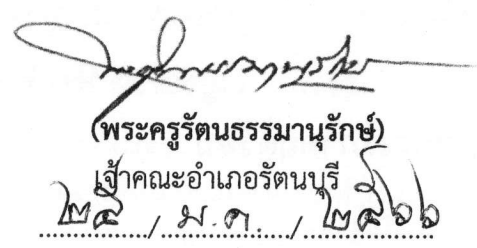 (พระครูรัตนธรรมานุรักษ์)
เจ้าคณะอำเภอรัตนบุรี
๒๕ / ม.ค. / ๒๕๖๖